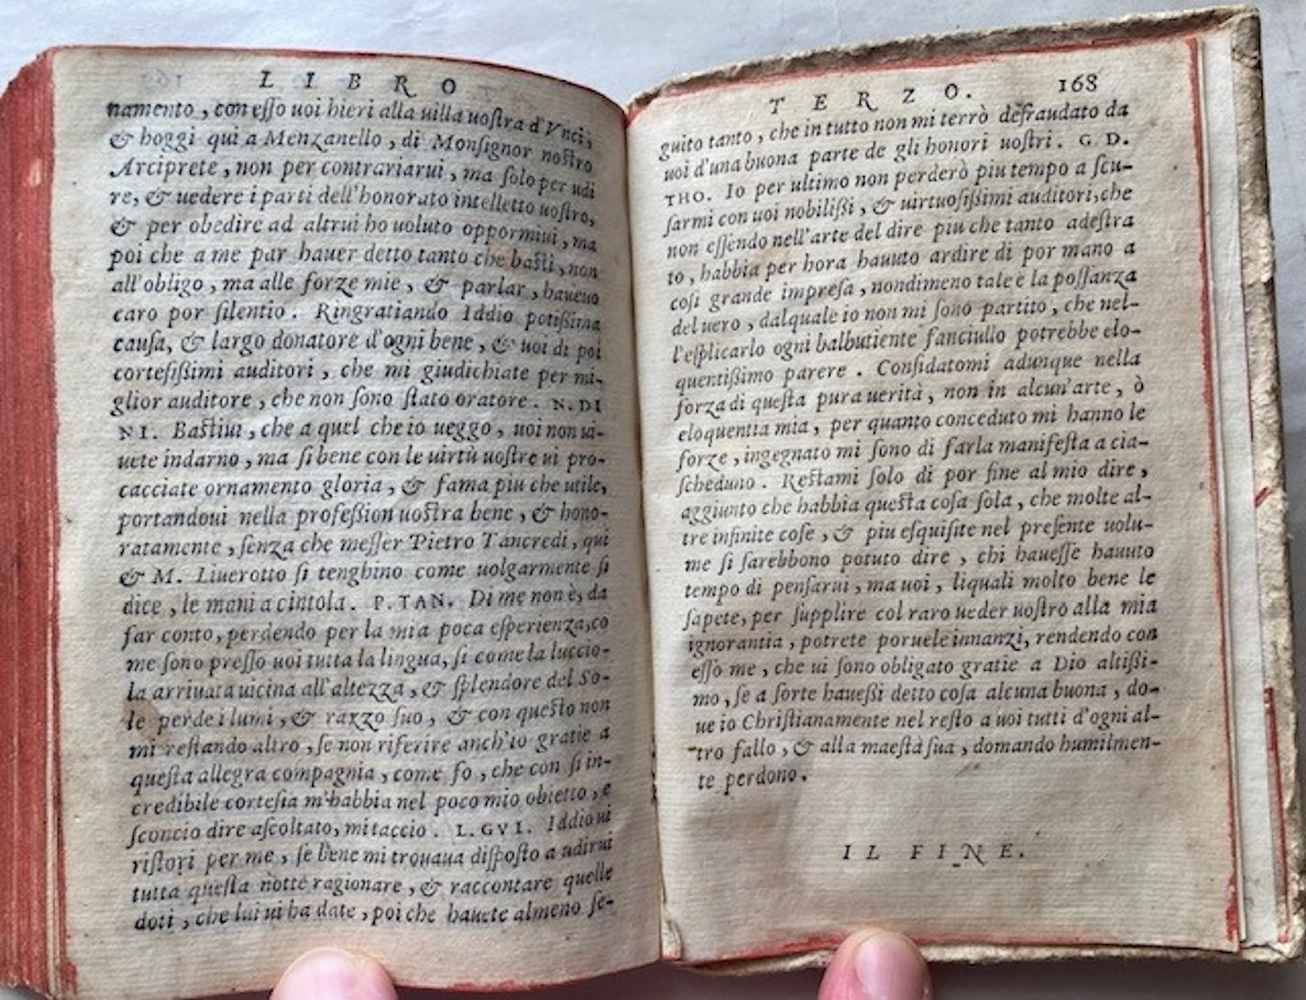 LIBRO
namento, con esso uoi hieri alla uilla uostra d'Vnci,
& hoggi qui a Menzanello, di Monsignor nostro
Arciprete, non per contrariarui, ma solo per udi
re, & uedere i parti dell'honorato intelletto uostro,
& per obedire ad altrui ho uoluto oppormiui, ma
poi che a me par hauer detto tanto che basti, non
all'obligo, ma alle forze mie, & parlar, haueuo
caro por silentio. Ringratiando Iddio potißima
causa, & largo donatore d'ogni bene, & uoi di poi
cortesißimi auditori, che mi giudichiate per mi-
glior auditore, che non sono stato oratore. N. DI
NI. Bastiui, che a quel che io ueggo, uoi non ui-
uete indarno, ma si bene con le uirtù uostre ui pro-
cacciate ornamento gloria, & fama piu che utile,
portandoui nella profeßion uostra bene, & hono-
ratamente, senza che messer Pietro Tancredi, qui
& M. Liuerotto si tenghino come uolgarmente si
dice, le mani a cintola. P. TAN. Di me non è, da
far conto, perdendo per la mia poca esperienza, co
me sono presso uoi tutta la lingua, si come la luccio-
la arriuata uicina all'altezza, & splendore del So-
le perde i lumi, & razzo suo, & con questo non
mi restando altro, se non riferire anch'io gratie a
questa allegra compagnia, come fo, che con si in-
credibile cortesia m'habbia nel poco mio obietto, e
sconcio dire ascoltato, mi taccio. L. GVI. Iddio ui
ristori per me, se bene mi trouaua disposto a udirui
tutta questa notte ragionare, & raccontare quelle
doti, che lui ui ha date, poi che hauete almeno se-
TERZO. 168
guito tanto, che in tutto non mi terrò defraudato da
uoi d'una buona parte de gli honori uostri. G. D.
THO. Io per ultimo non perderò piu tempo a scu-
sarmi con uoi nobilißi, & uirtuosißimi auditori, che
non essendo nell'arte del dire piu che tanto adestra
to, habbia per hora hauuto ardire di por mano a
cosi grande impresa, nondimeno tale è la possanza
del uero, dal quale io non mi sono partito, che nel-
l'esplicarlo ogni balbutiente fanciullo potrebbe elo-
quentißimo parere. Confidatomi adunque nella
forza di questa pura uerità, non in alcun'arte, ò
eloquentia mia, per quanto conceduto mi hanno le
forze, ingegnato mi sono di farla manifesta a cia-
scheduno. Restami solo di por fine al mio dire,
aggiunto che habbia questa cosa sola, che molte al-
tre infinite cose, & piu esquisite nel presente uolu-
me si sarebbono potuto dire, chi hauesse hauuto
tempo di pensarui, ma uoi, liquali molto bene le
sapete, per supplire col raro ueder uostro alla mia
ignorantia, potrete poruele innanzi, rendendo con
esso me, che ui sono obligato gratie a Dio altißi-
mo, se a sorte haueßi detto cosa alcuna buona, do-
ue io Christianamente nel resto a uoi tutti d'ogni al-
tro fallo, & alla maestà sua, domando humilmen-
te perdono.
IL FINE.